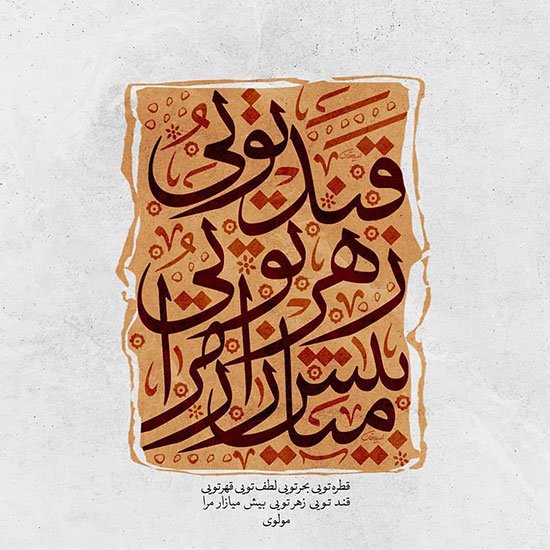 قند تویی
زهر تویی
بیش میازار مرا
قطره تویی بحر تویی لطف تویی قهر تویی
قند تویی زهر تویی بیش میازار مرا
مولوی